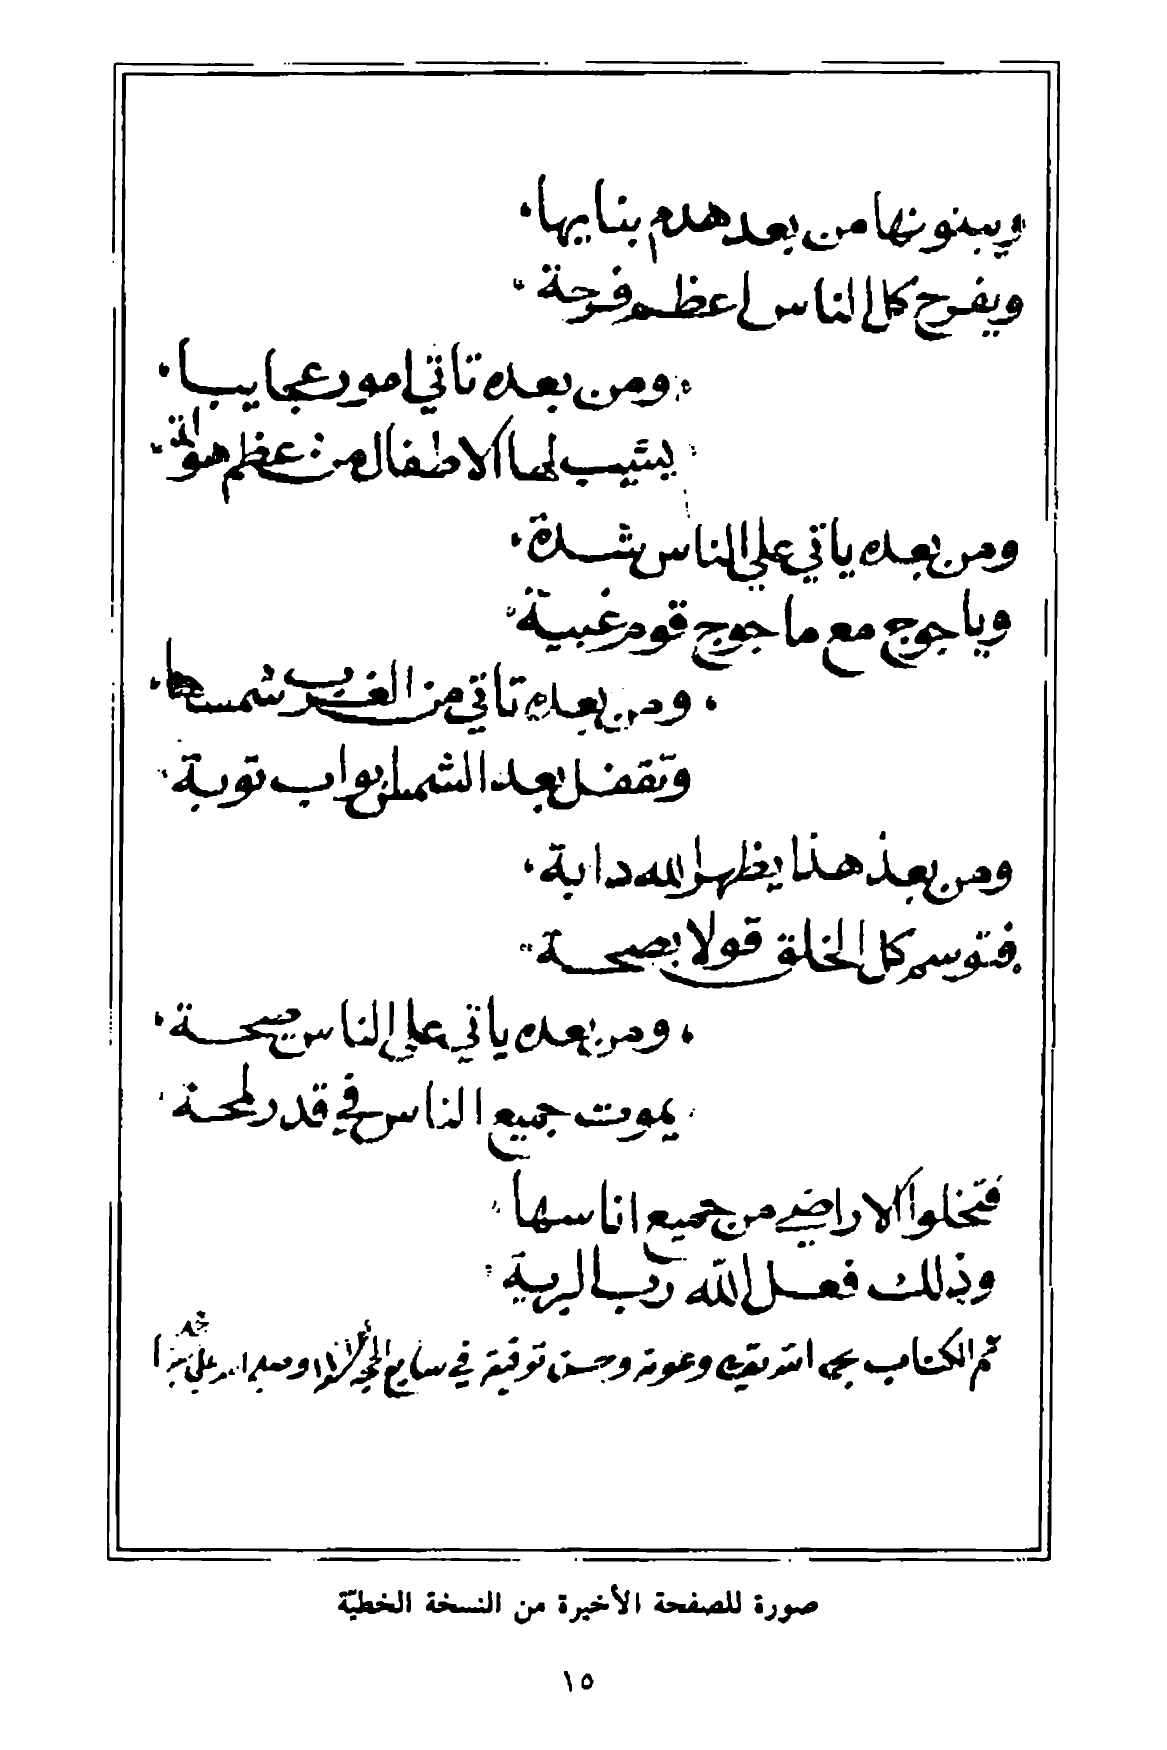 ويبنونها من بعد هدم بنايها
ويفرح كل الناس اعظم فرحة
ومن بعده تاتي امور عجايبا
يشيب لها الاطفال من عظم هولة
ومن بعده ياتي علي الناس شدة
وياجوج مع ماجوج قوم غبية
ومن بعده تاتي من الغرب شمسها
وتقفل بعد الشمس ابواب توبة
ومن بعد هذا يظهر الله دابة
فتوسم كل الخلق قولا بصحة
ومن بعده ياتي علي الناس صيحة
يموت جميع الناس في قدر لمحة
فتخلوا الاراضي من جميع اناسها
وذلك فعل الله رب البرية
تم الكتاب بحمد الله وعونه وحسن توفيقه في سابع
صورة للصفحة الأخيرة من النسخة الخطيّة
١٥